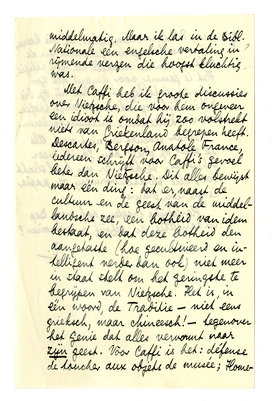 middelmatig. Maar ik las in de Bibl.
Nationale een engelsche vertaling in
rijmende verzen die hoogst kluchtig
was.
Met Caffi heb ik groote discussies
over Nietzsche, die voor hem ongeveer
een idioot is omdat hij zoo volstrekt
niets van Griekenland begrepen heeft.
Descartes, Bergson, Anatole France,
iedereen schrijft voor Caffi's gevoel
beter dan Nietzsche. Dit alles bewijst
maar één ding: dat er, naast de
cultuur en de geest van de middel-
landsche zee, een botheid van idem
bestaat, en dat deze botheid den
aangetaste (hoe gecultiveerd en in-
telligent verder dan ook) niet meer
in staat stelt om het geringste te
begrijpen van Nietzsche. Het is, in
één woord, de Traditie — niet eens
grieksch, maar chineesch! — tegenover
het genie dat alles vervormt naar
zijn geest. Voor Caffi is het: défense
de toucher aux objets de musée; Home-